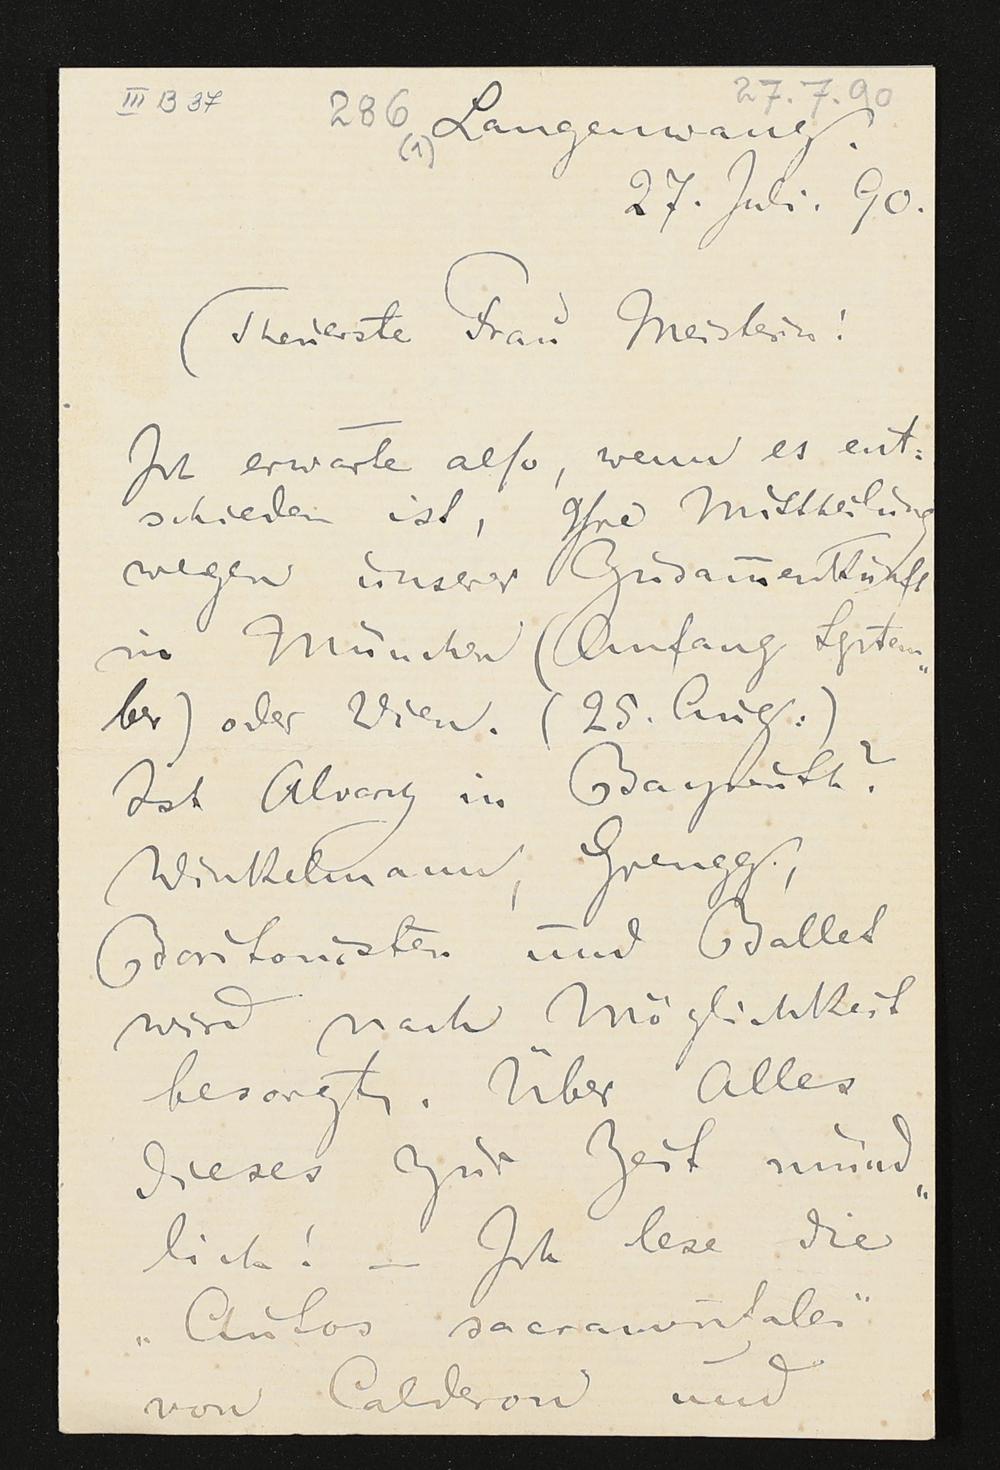 III B 37
27.7.90
286
(1)
Langenwang.
27. Juli. 90.
Theuerste Frau Meisterin!
Ich erwarte also, wenn es ent:
schieden ist, Ihre Mittheilung
wegen unserer Zusam̅enkunft
in München (Anfang Septem„
ber) oder Wien. (25. Aug.)
Ist Alvary in Bayreuth?
Winkelmann, Grengg,
Baritonisten und Ballet
wird nach Möglichkeit
besorgt. Über Alles
dieses zur Zeit münd„
lich! — Ich lese die
„Autos sacramentales"
von Calderon und